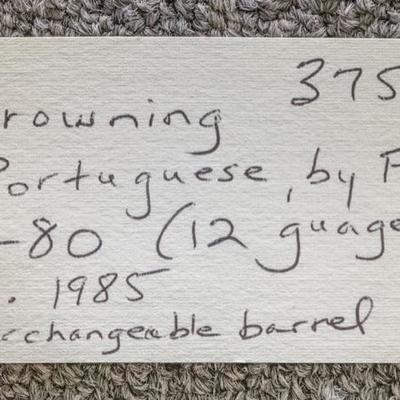 375
rowning
Portuguese, by F
-80 (12 guage
. 1985
rchangeable barrel